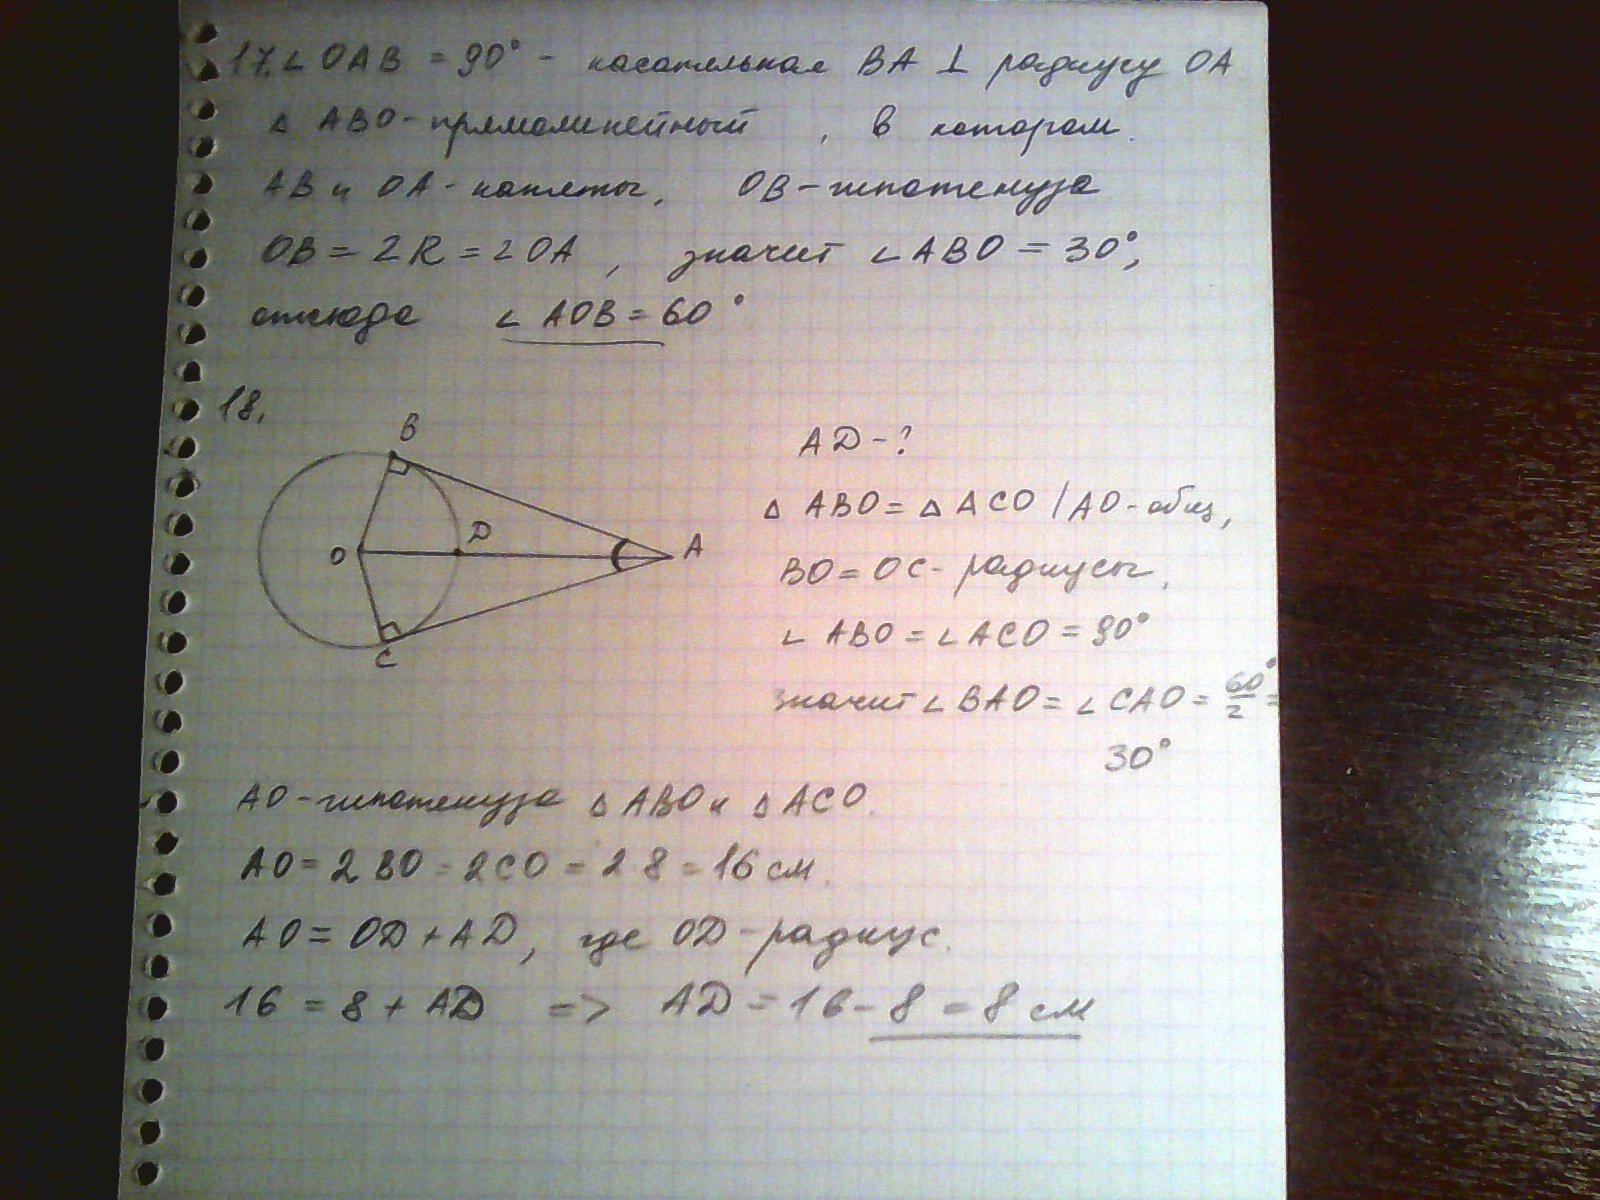 17. ∠ OAB = 90° - касательная BA ⊥ радиусу OA
△ ABO - прямолинейный , в котором
AB и OA - катеты, OB - гипотенуза
OB = 2R = 2OA , значит ∠ ABO = 30°,
отсюда ∠ AOB = 60°
18.
B
O
D
A
C
AD - ?
△ ABO = △ ACO / AO - общ,
BO = OC - радиусы,
∠ ABO = ∠ ACO = 90°
значит ∠ BAO = ∠ CAO = 60°/2 =
30°
AO - гипотенуза △ ABO и △ ACO.
AO = 2 BO = 2CO = 2 8 = 16 см.
AO = OD + AD, где OD - радиус.
16 = 8 + AD => AD = 16 - 8 = 8 см